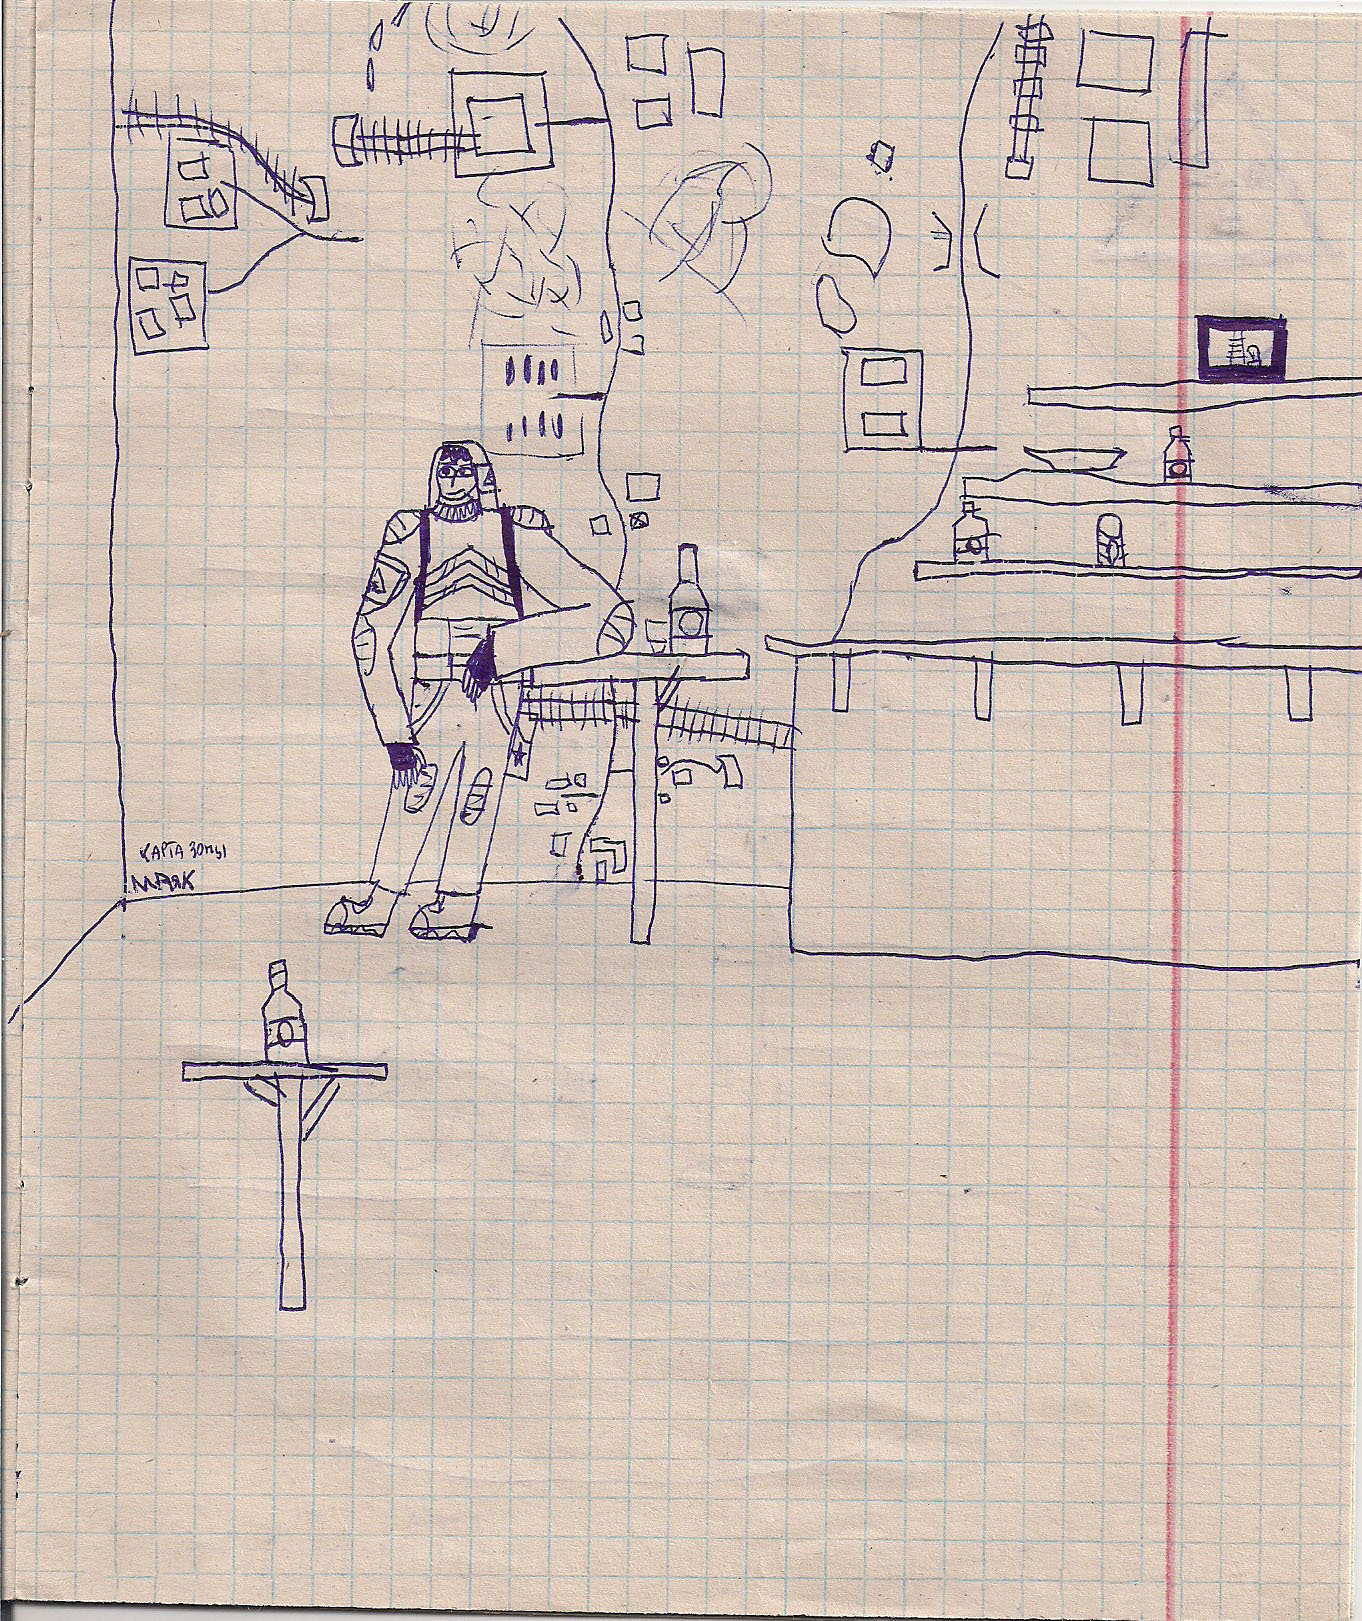 КАРТА ЗОНЫ
МАЯК